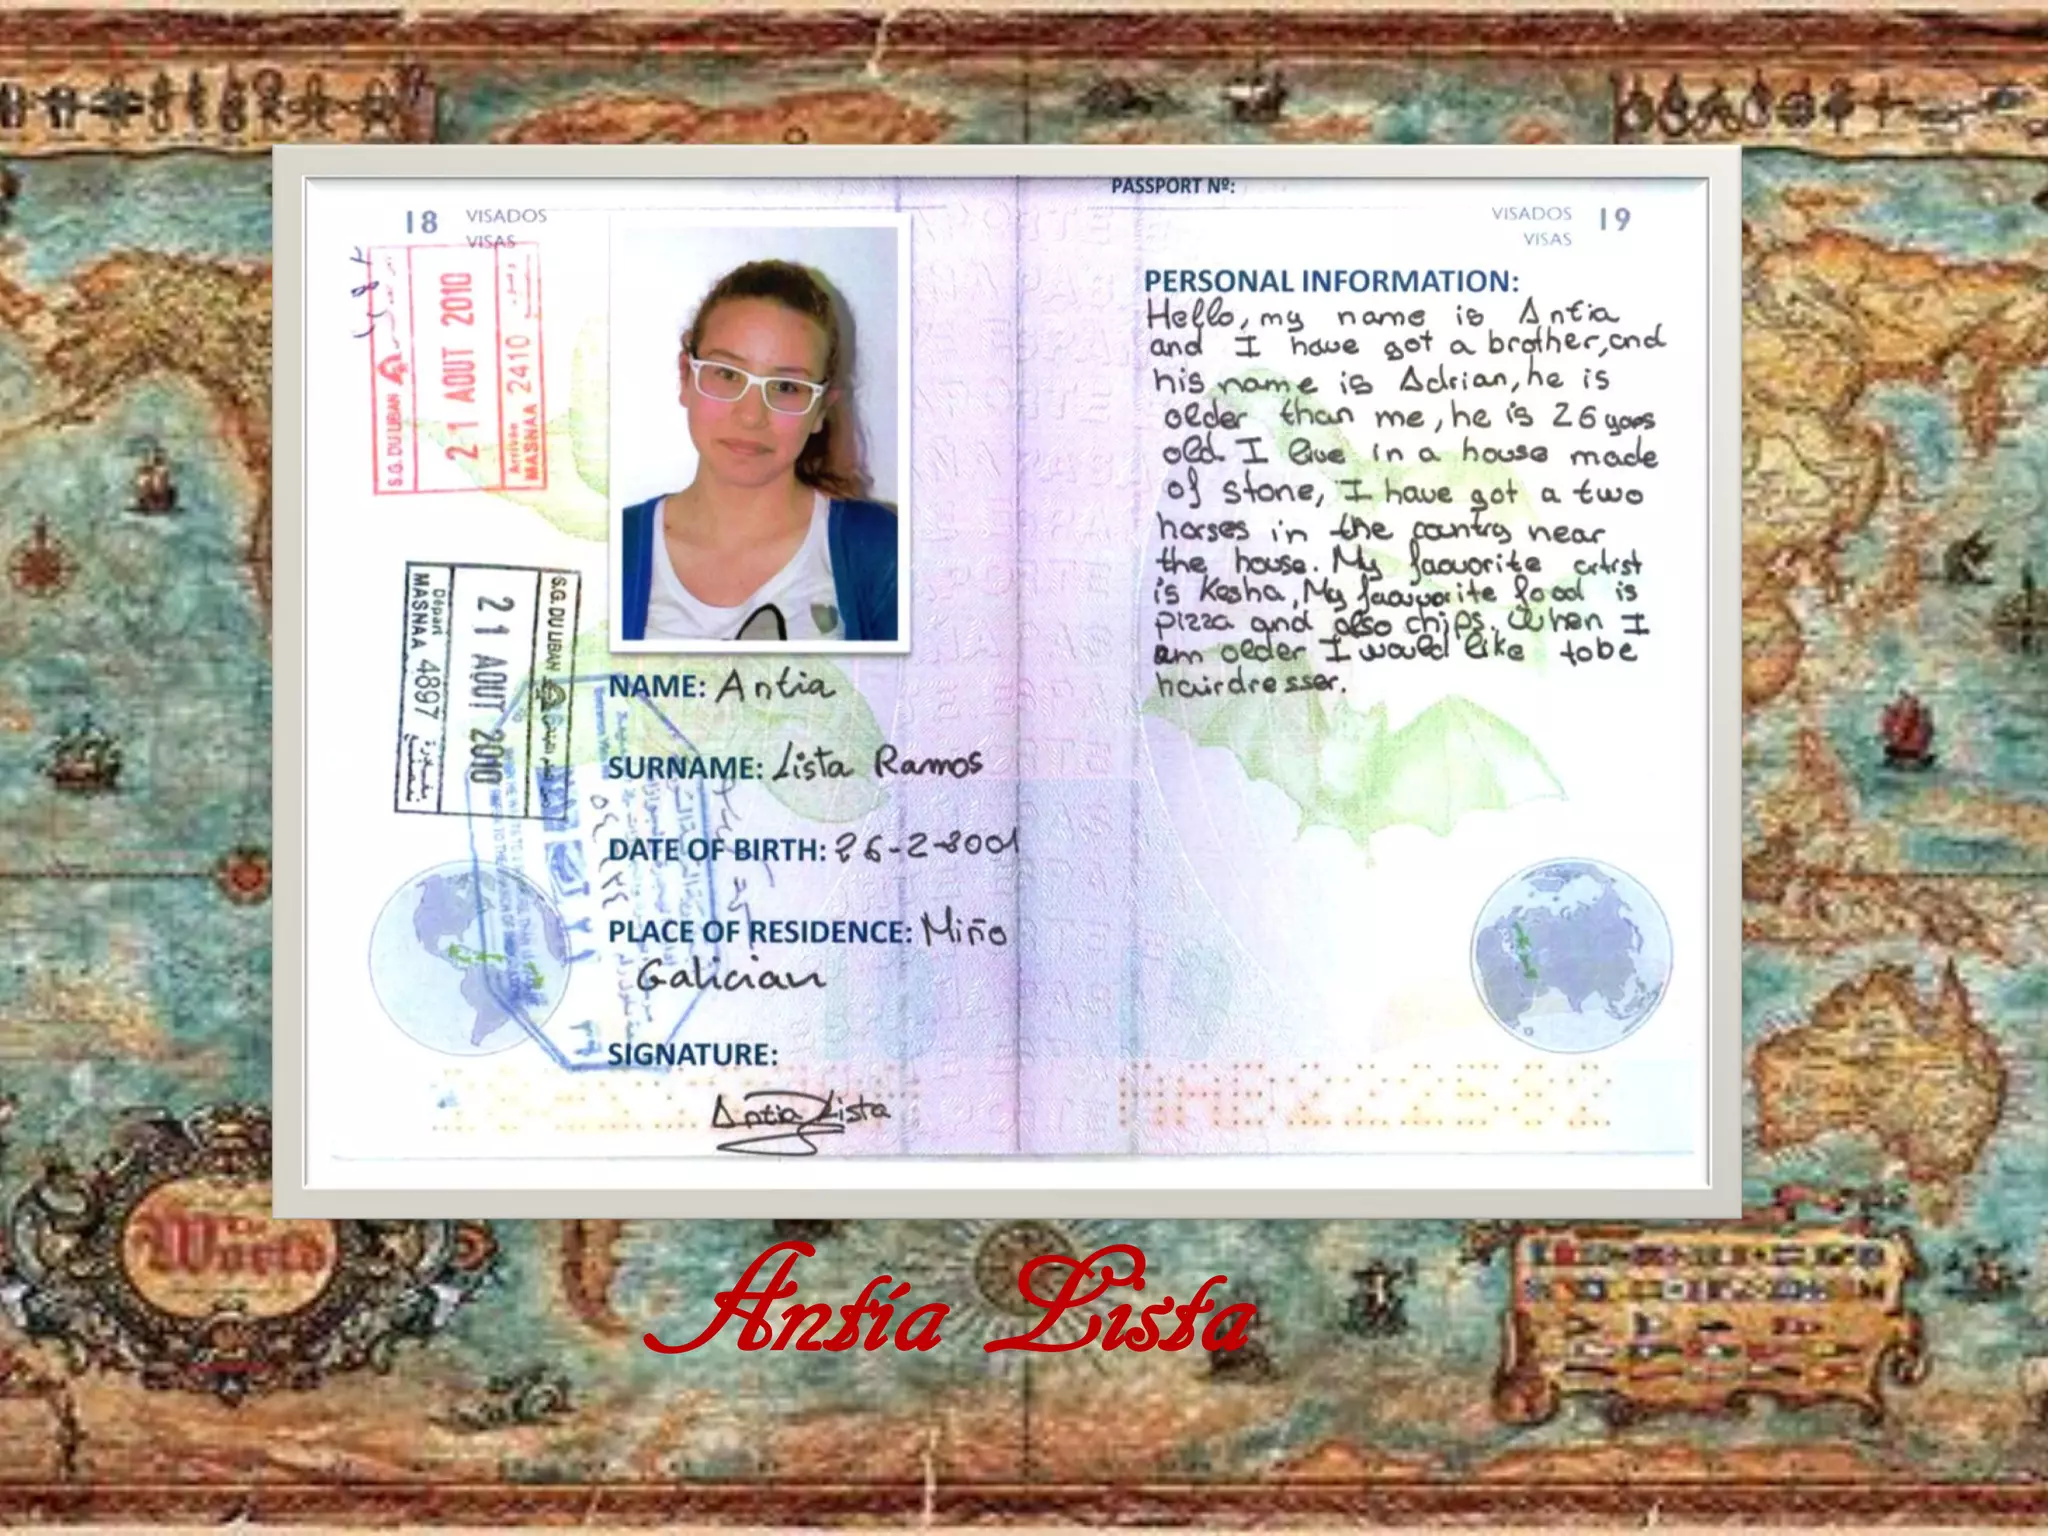 PASSPORT Nº:
18 VISADOS
VISAS
VISADOS 19
VISAS
S.G. DU LIBAN
21 AOUT 2010
Arrivée 2410
MASNAA
S.G. DU LIBAN
21 AOUT 2010
Départ 4897
MASNAA
NAME: Antia
SURNAME: Lista Ramos
DATE OF BIRTH: 26-2-2001
PLACE OF RESIDENCE: Miño
Galician
SIGNATURE:
Antia Lista
PERSONAL INFORMATION:
Hello, my name is Antia
and I have got a brother, and
his name is Adrian, he is
older than me, he is 26 years
old. I live in a house made
of stone, I have got a two
horses in the country near
the house. My faouorite artist
is Kesha, My faouvorite food is
pizza and also chips. When I
am older I would like tobe
hairdresser.
The
World
Antía Lista